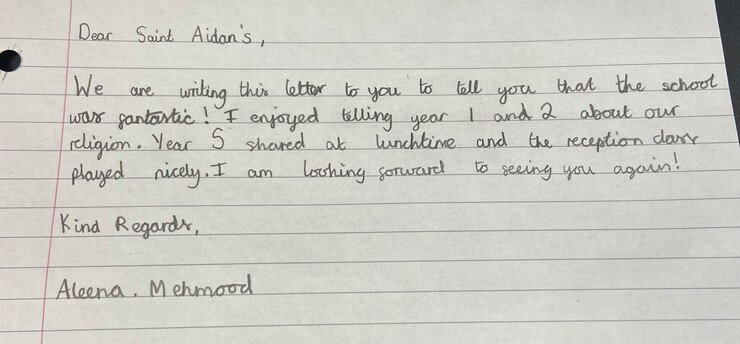 Dear Saint Aidan's,
We are writing this letter to you to tell you that the school
was fantastic! I enjoyed telling year 1 and 2 about our
religion. Year 5 shared at lunchtime and the reception class
played nicely. I am looking forward to seeing you again!
Kind Regards,
Aleena. Mehmood